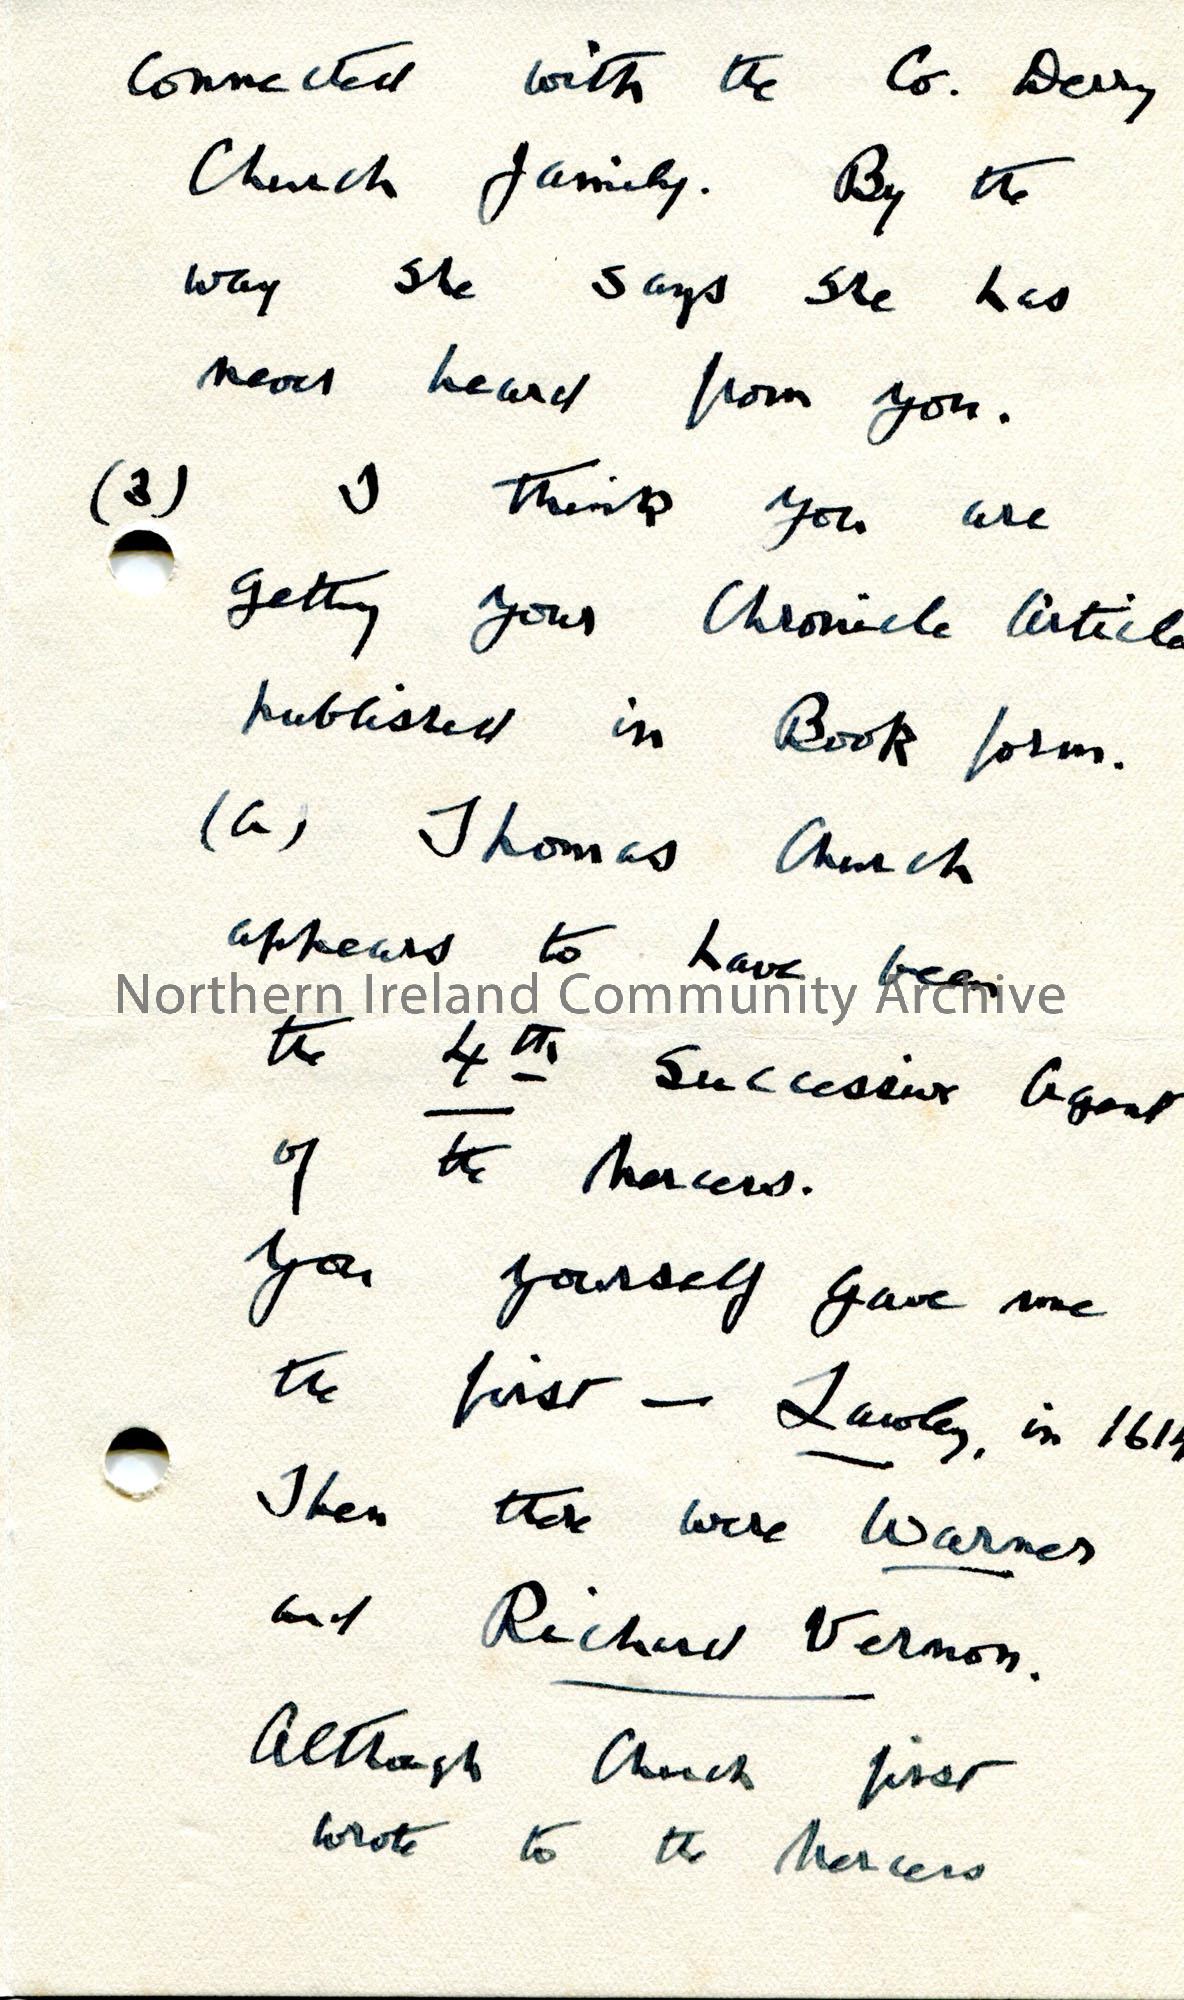 Connected with the Co. Derry
Church family. By the
way she says she has
never heard from you.
(3) I think you are
getting your Chronicle Article
published in Book form.
(a) Thomas Church
appears to have been
Northern Ireland Community Archive
the 4th Successive Agent
of the Mercers.
You yourself gave me
the first — Lawley, in 1614
Then there were Warner
and Richard Vernon.
Although Church first
wrote to the Mercers